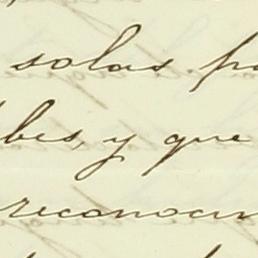 solas pa
bles, y que
reconocim